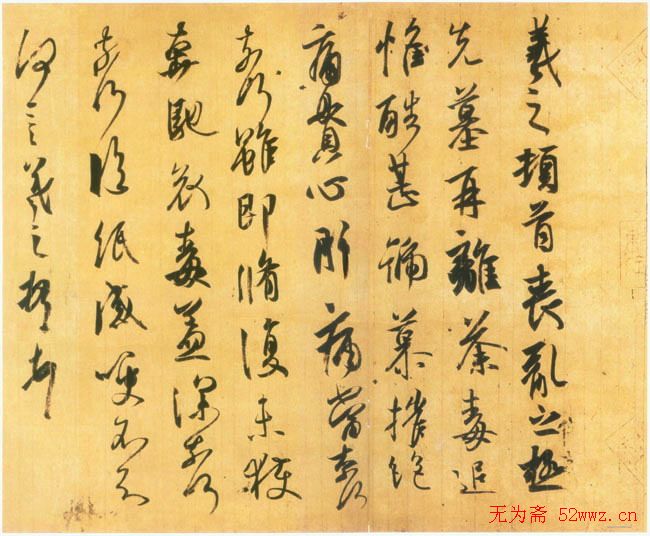 羲之頓首喪亂之極
先墓再離荼毒追
惟酷甚號慕摧絕
痛貫心肝痛當奈何
奈何雖即脩復未獲
奔馳哀毒益深奈何
奈何臨紙感哽不知
何言羲之頓首
无为斋 52wwz.cn